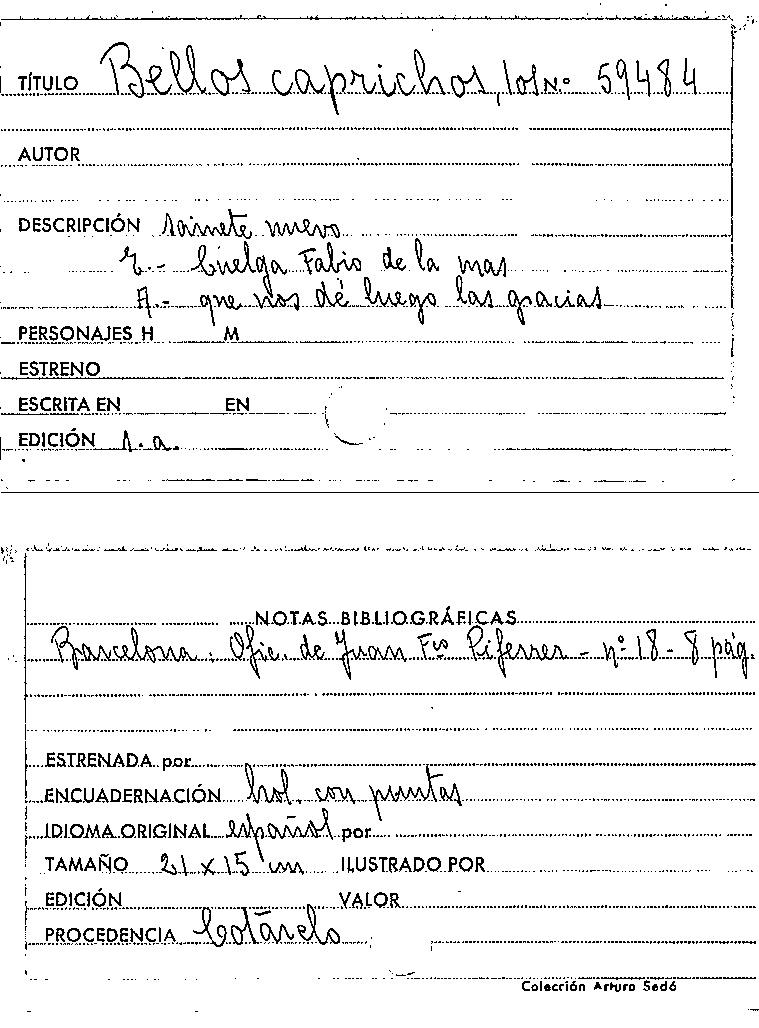 TÍTULO Bellos caprichos, los Nº 59484
AUTOR
DESCRIPCIÓN sainete nuevo
E.- Cuelga Fabio de la mas
A.- que nos dé luego las gracias
PERSONAJES H M
ESTRENO
ESCRITA EN EN
EDICIÓN s.a.
NOTAS BIBLIOGRÁFICAS
Barcelona: Ofic. de Juan Fco Piferrer - nº 18 - 8 pág.
ESTRENADA por
ENCUADERNACIÓN hol. con puntas
IDIOMA ORIGINAL español por
TAMAÑO 21 x 15 cm ILUSTRADO POR
EDICIÓN VALOR
PROCEDENCIA Cotarelo
Colección Arturo Sedó